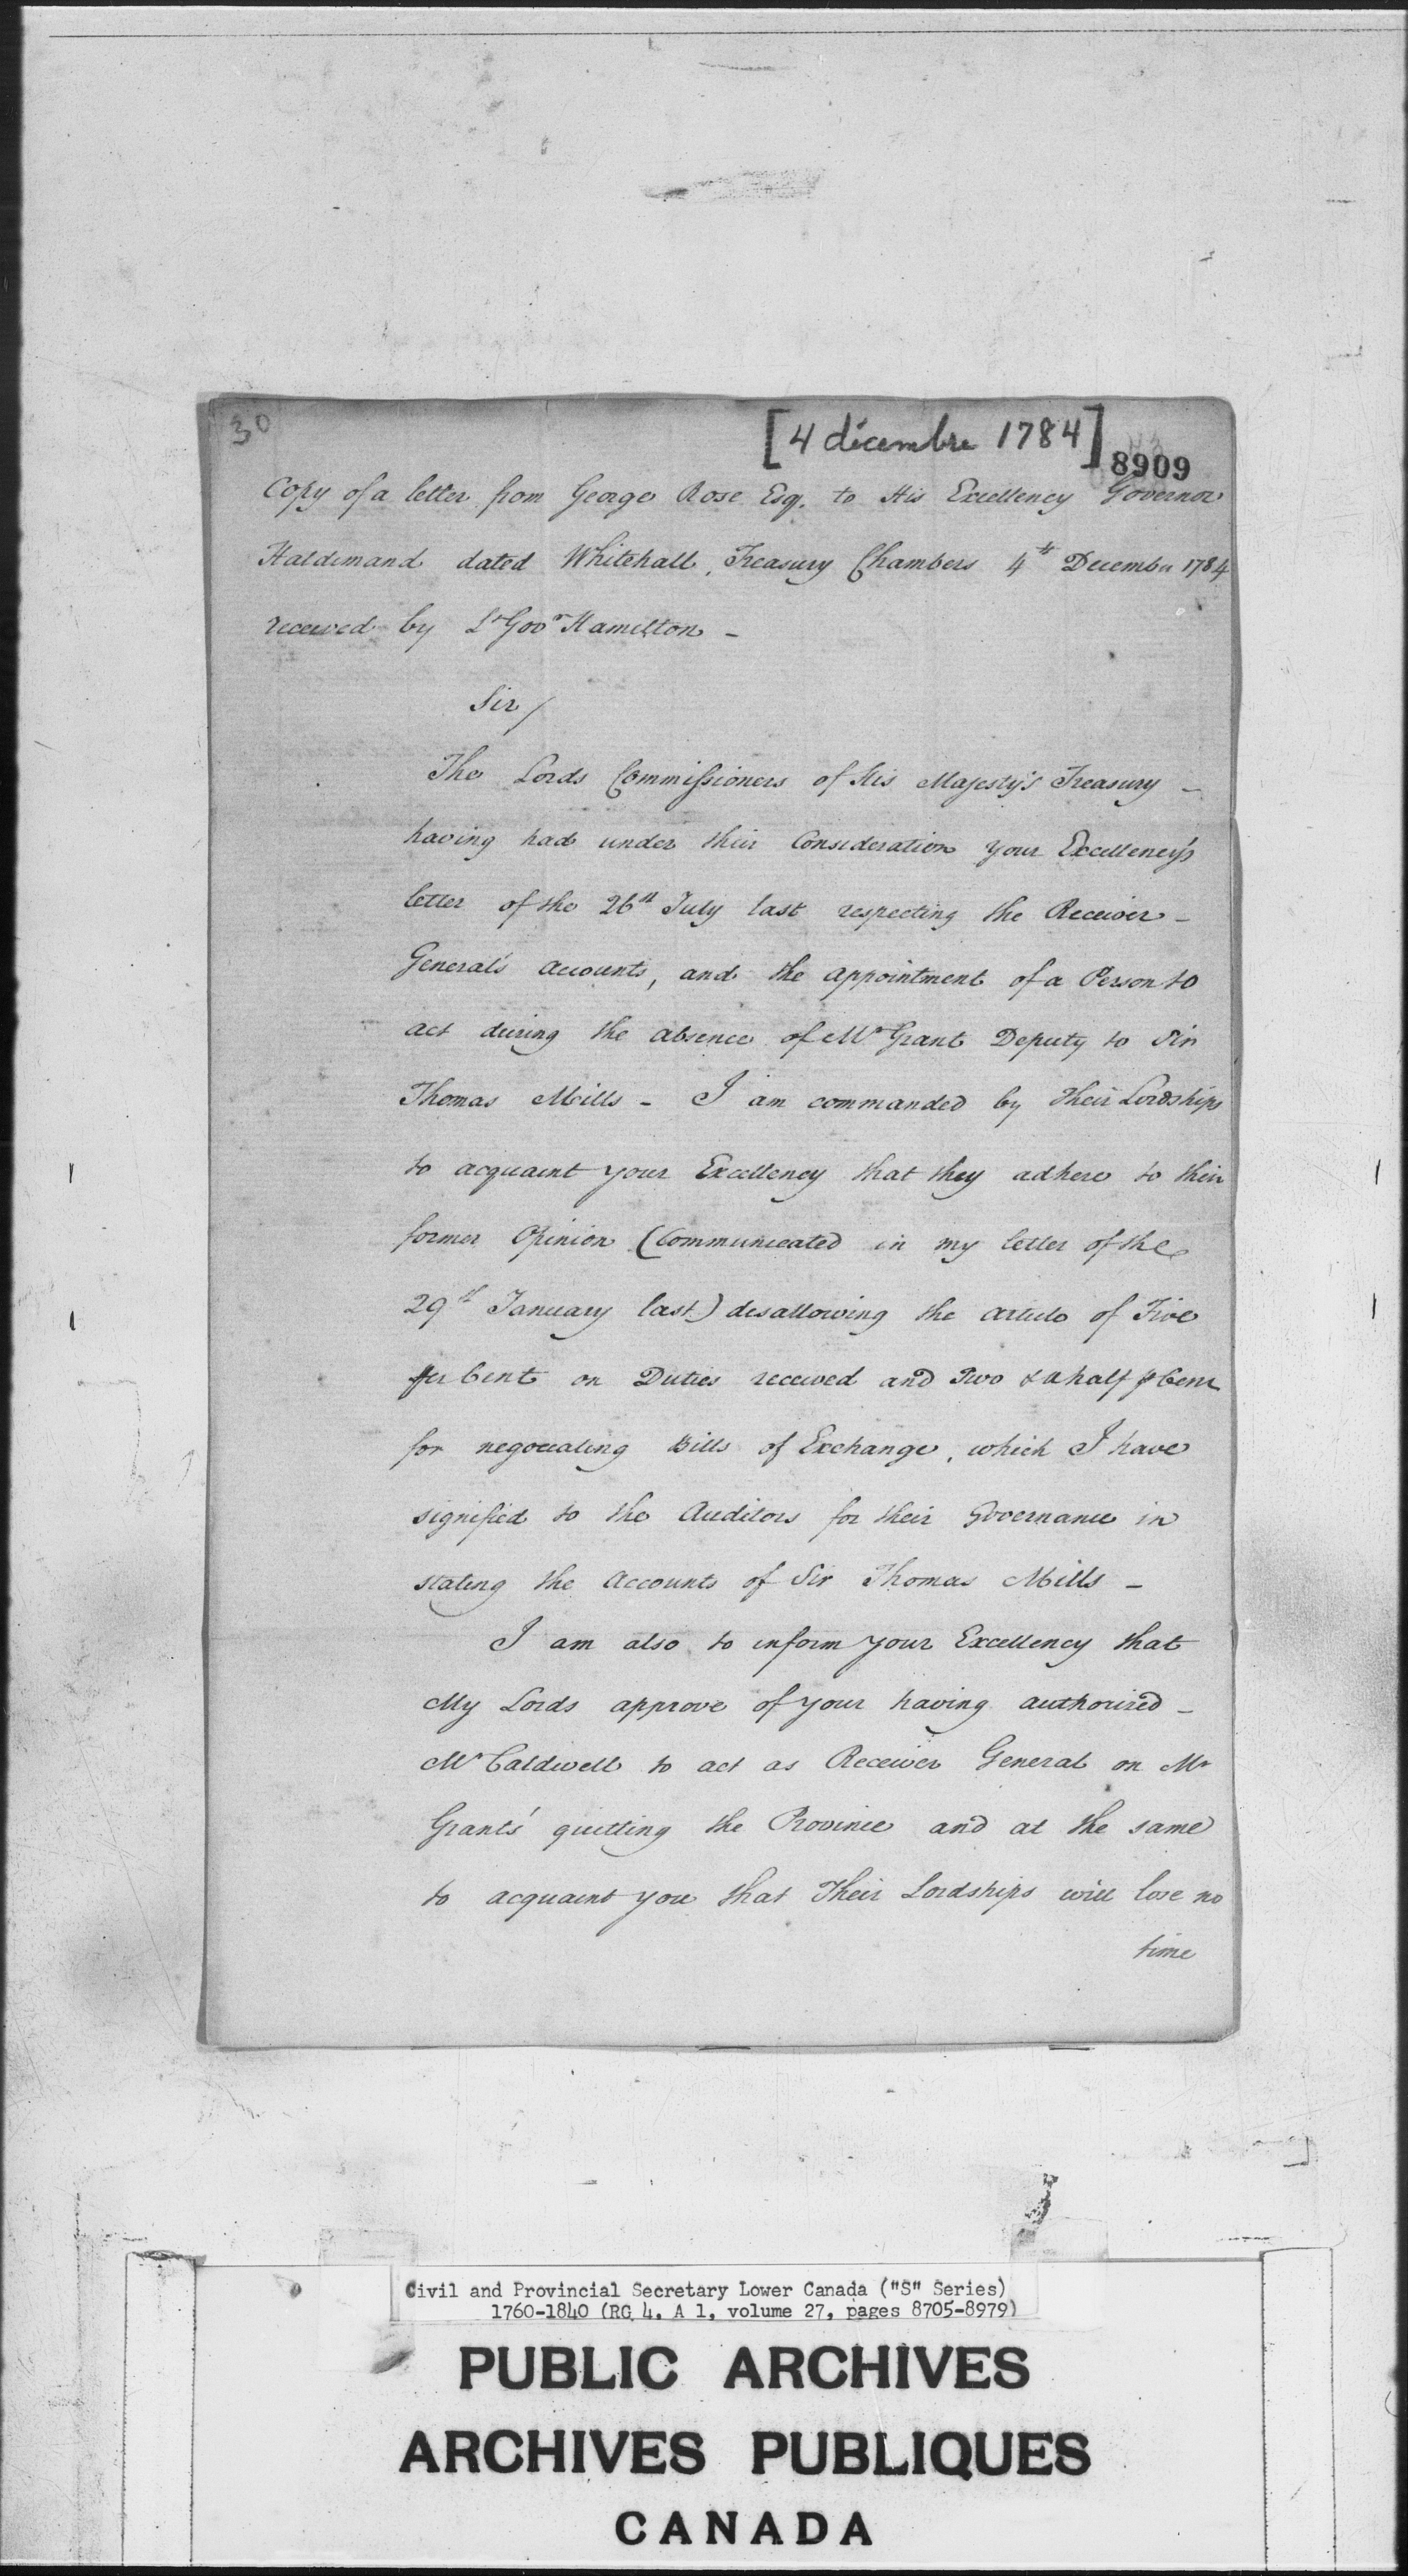 30
[4 décembre 1784]
8909
Copy of a letter from George Rose Esq. to His Excellency Governor
Haldimand dated Whitehall, Treasury Chambers 4th December 1784
received by Lt Govr Hamilton -
Sir /
The Lords Commissioners of His Majesty's Treasury -
having had under their Consideration your Excellency's
letter of the 26th July last respecting the Receiver -
General's accounts, and the appointment of a Person to
act during the absence of Mr Grant Deputy to Sir
Thomas Mills - I am commanded by Their Lordships
to acquaint your Excellency that they adhere to their
former Opinion (Communicated in my letter of the
29th January last) disallowing the article of Five
per Cent on Duties received and Two & a half p Cent
for negociating Bills of Exchange, which I have
signified to the Auditors for their Governance in
stating the Accounts of Sir Thomas Mills -
I am also to inform your Excellency that
My Lords approve of your having authorized -
Mr Caldwell to act as Receiver General on Mr
Grants' quitting the Province and at the same
to acquaint you that Their Lordships will lose no
time
Civil and Provincial Secretary Lower Canada ("S" Series)
1760-1840 (RG 4, A 1, volume 27, pages 8705-8979)
PUBLIC ARCHIVES
ARCHIVES PUBLIQUES
CANADA